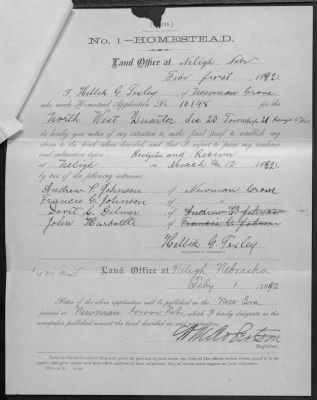 No. 1—HOMESTEAD.
Land Office at Neligh Nebr
Feby first, 1892
I, Hellick G. Tosley, of Newman Grove
who made Homestead Application No. 10148 for the
North West Quarter Sec 20 Township 21 Range 4 West
do hereby give notice of my intention to make final proof to establish my
claim to the land above described, and that I expect to prove my residence
and cultivation before Register and Receiver
at Neligh on March 12 1892,
by two of the following witnesses:
Andrew P. Johnson of Newman Grove
Francis G. Johnson of
David L. Gilmer of Andrew P. Johnson
John Harbottle of Francis G. Johnson
Hellick G. Tosley
Land Office at Neligh Nebraska
Feby 1 1892
Notice of the above application will be published in the New Era
printed at Newman Grove Nebr, which I hereby designate as the
newspaper published nearest the land described in said application.
Register.